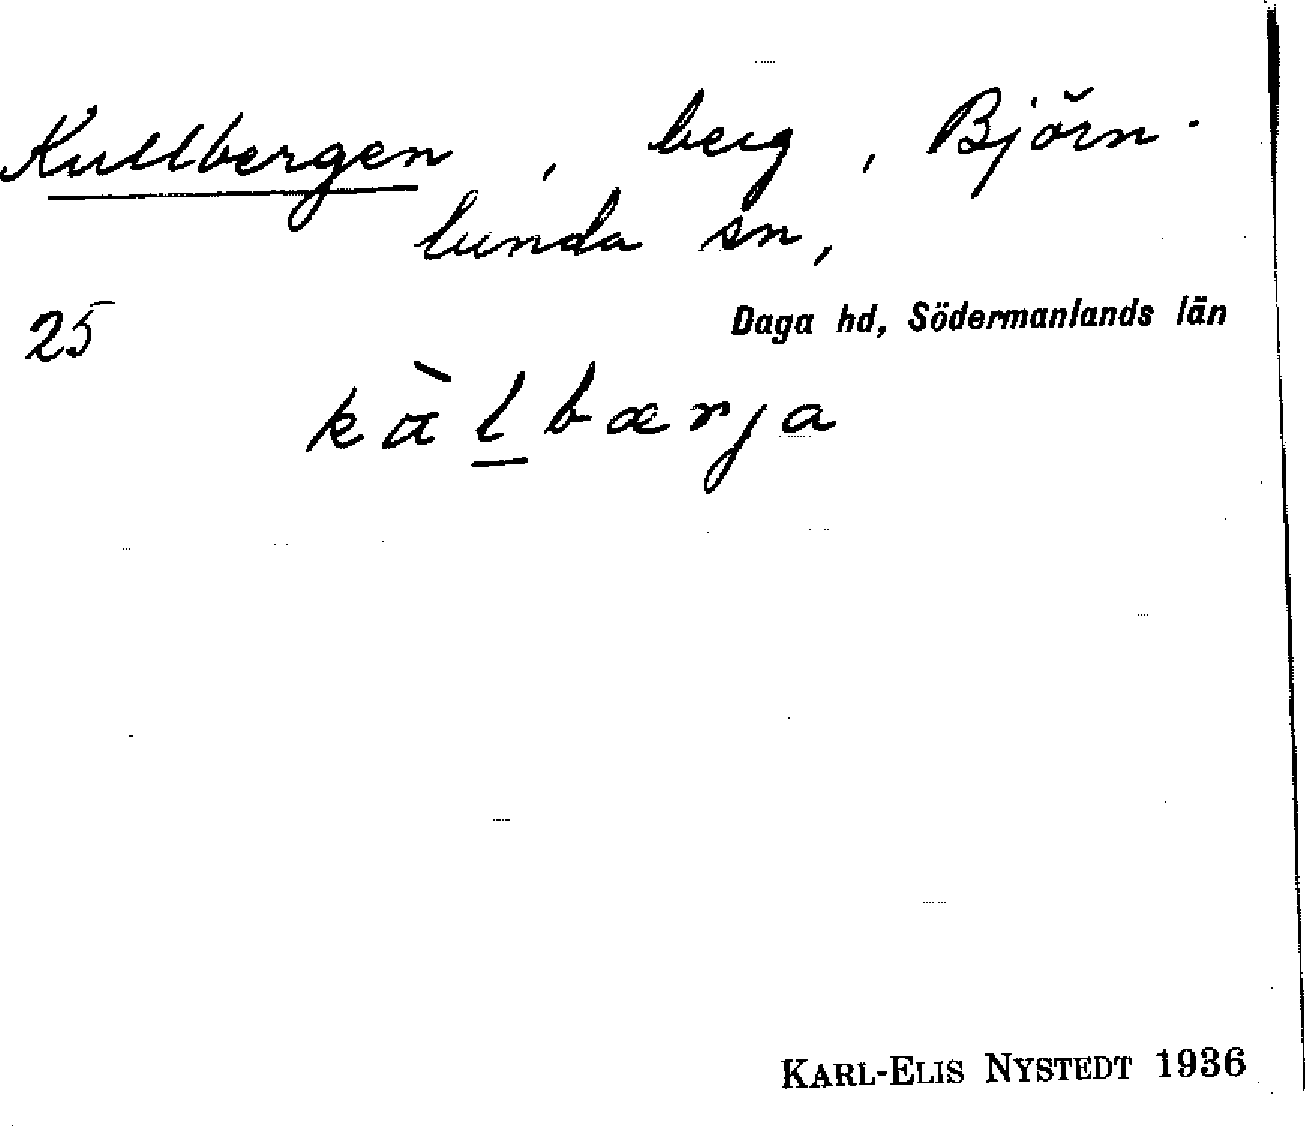 Kullbergen, berg, Björn-
lunda sn,
25 Daga hd, Södermanlands län
kàlbærja
KARL-ELIS NYSTEDT 1936